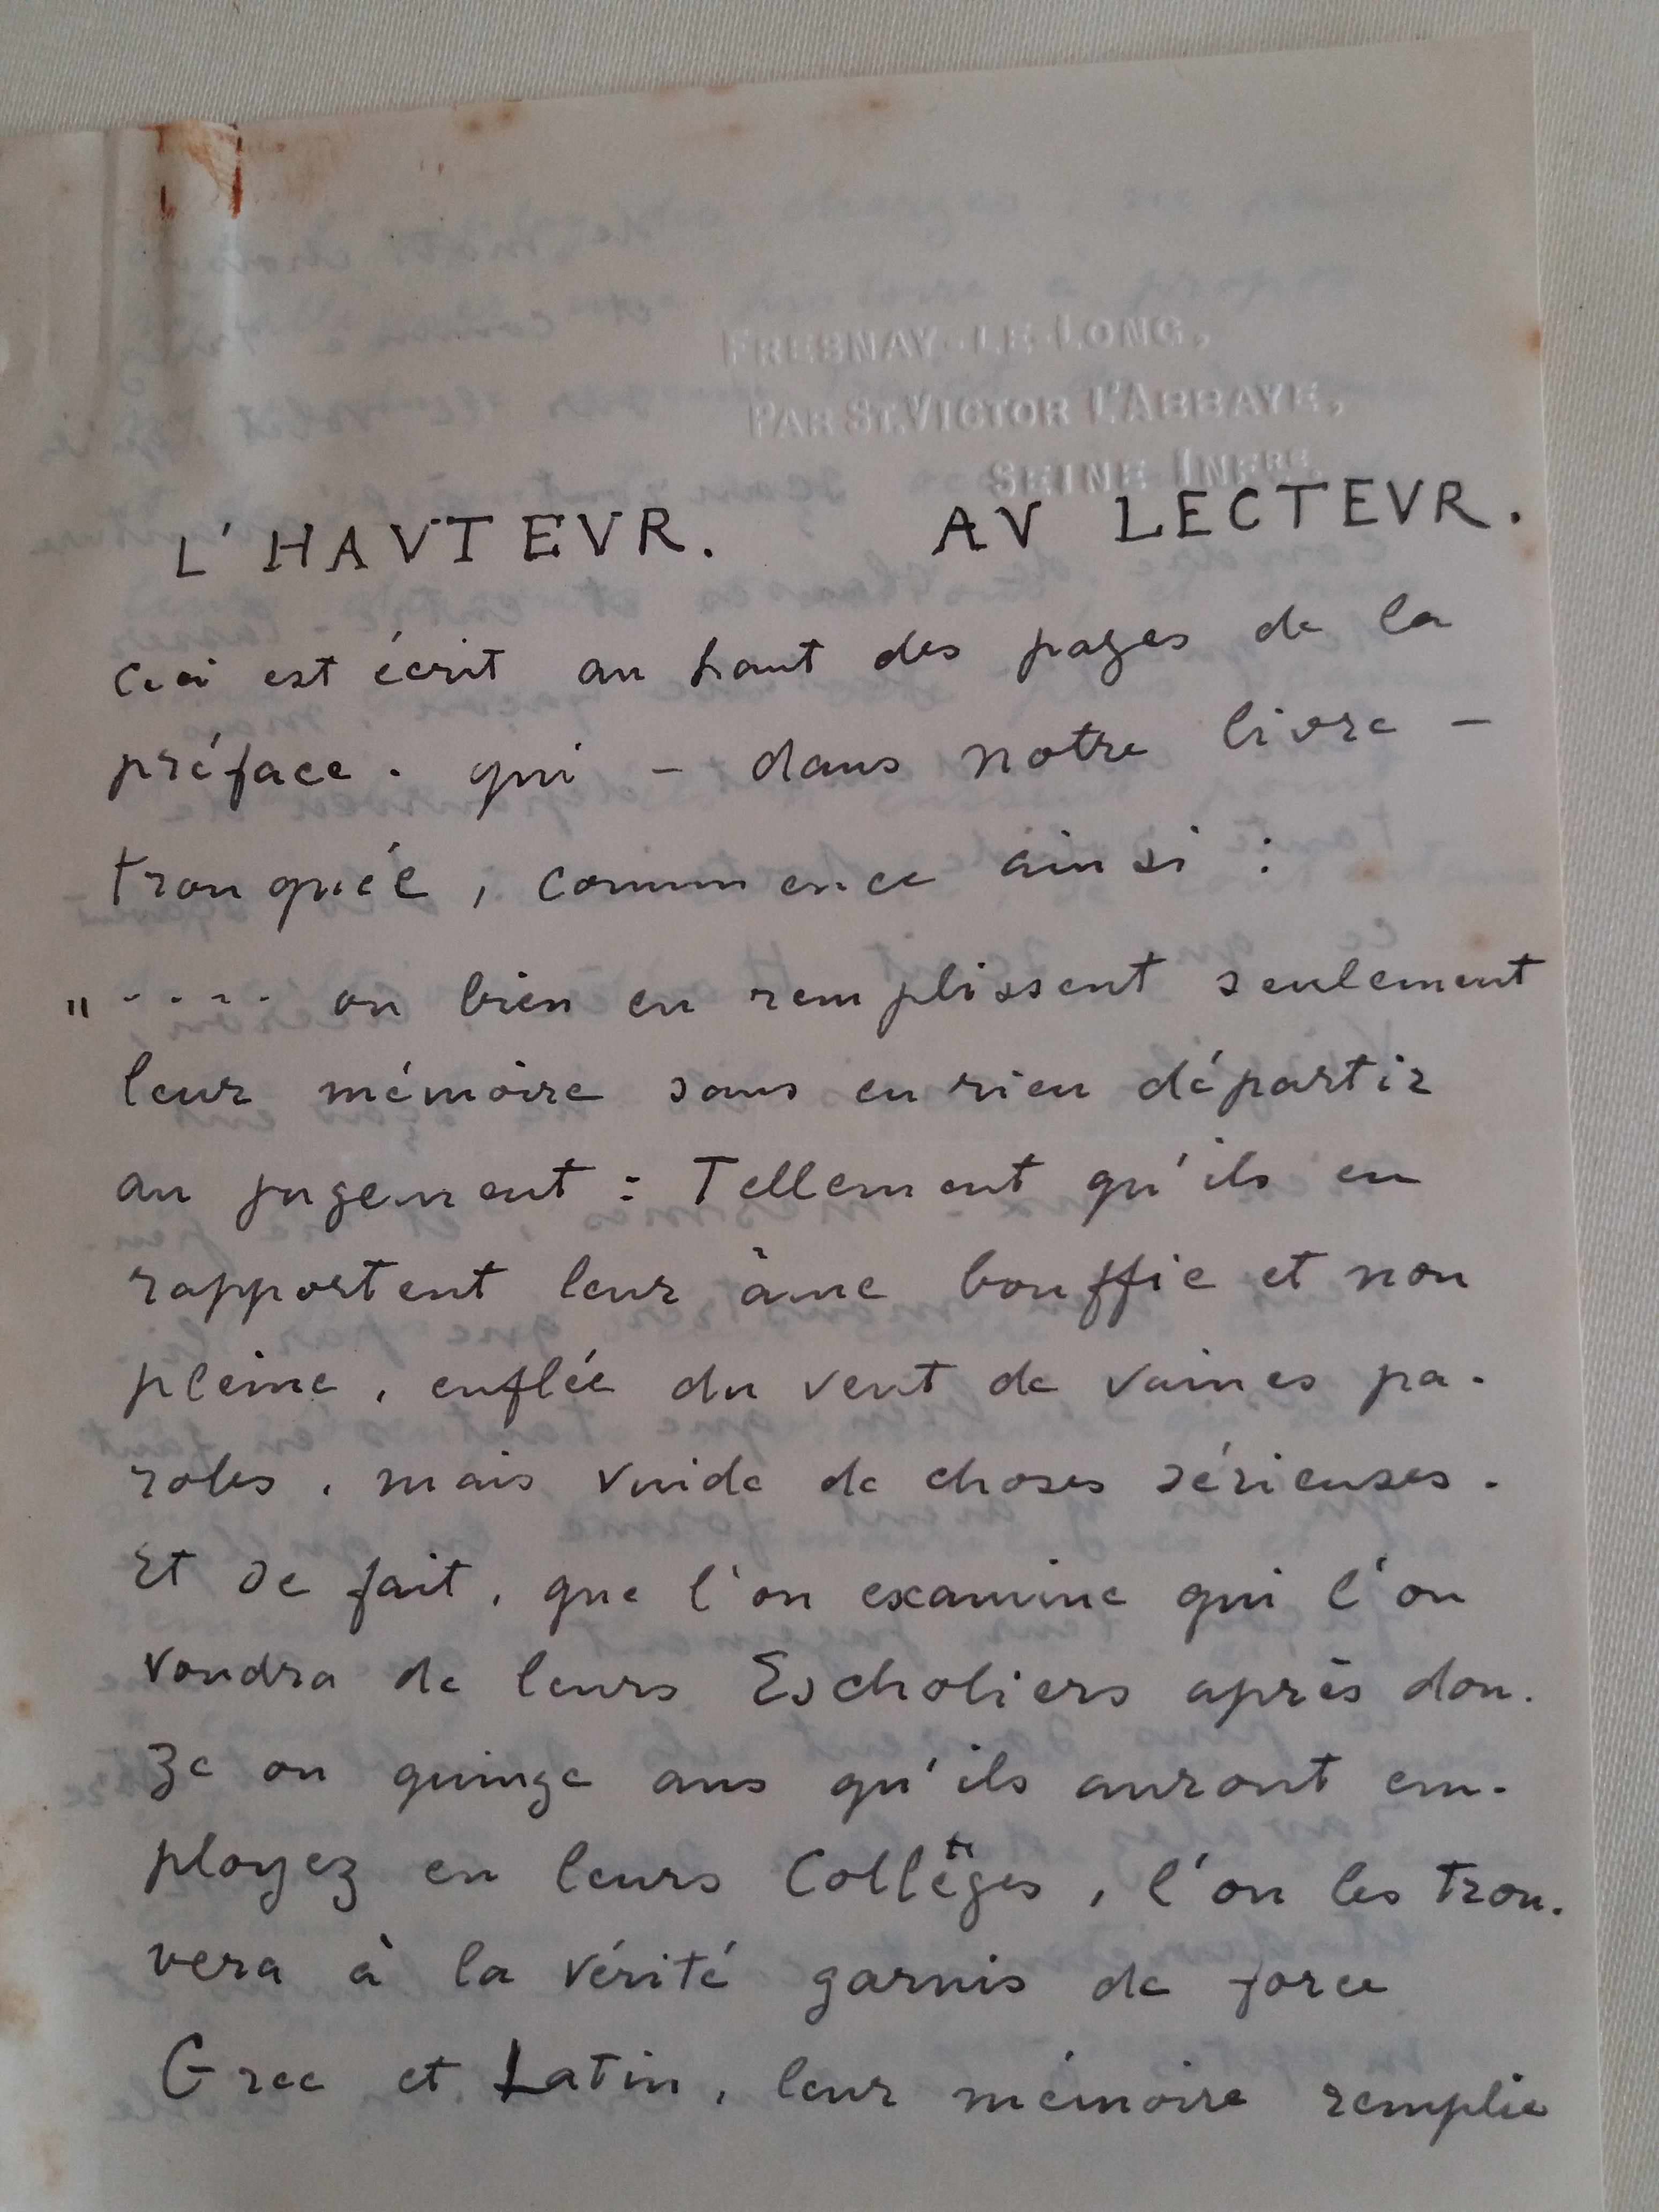 FRESNAY-LE-LONG,
PAR ST. VICTOR L'ABBAYE,
SEINE INFRE.
L'HAVTEVR. AV LECTEVR.
Ceci est écrit au haut des pages de la
préface. qui – dans notre livre –
tronquée, commence ainsi :
" ..... ou bien en remplissent seulement
leur mémoire sans en rien départir
au jugement : Tellement qu'ils en
rapportent leur âme bouffie et non
pleine, enflée du vent de vaines pa-
roles, mais vuide de choses sérieuses.
Et de fait, que l'on examine qui l'on
voudra de leurs Escholiers après dou-
ze ou quinze ans qu'ils auront em-
ployez en leurs Collèges, l'on les trou-
vera à la vérité garnis de force
Grec et Latin, leur mémoire remplie